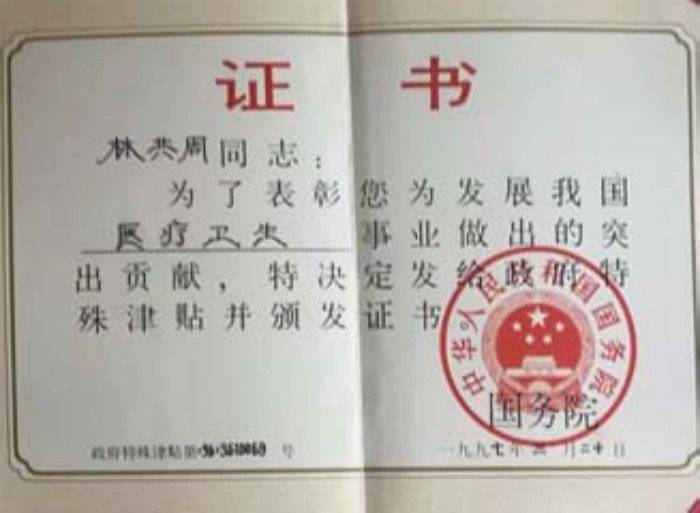 证书
林共周同志：
为了表彰您为发展我国
医疗卫生事业做出的突
出贡献，特决定发给政府特
殊津贴并颁发证书
中华人民共和国国务院
国务院
政府特殊津贴第 号
一九九七年 月二十日